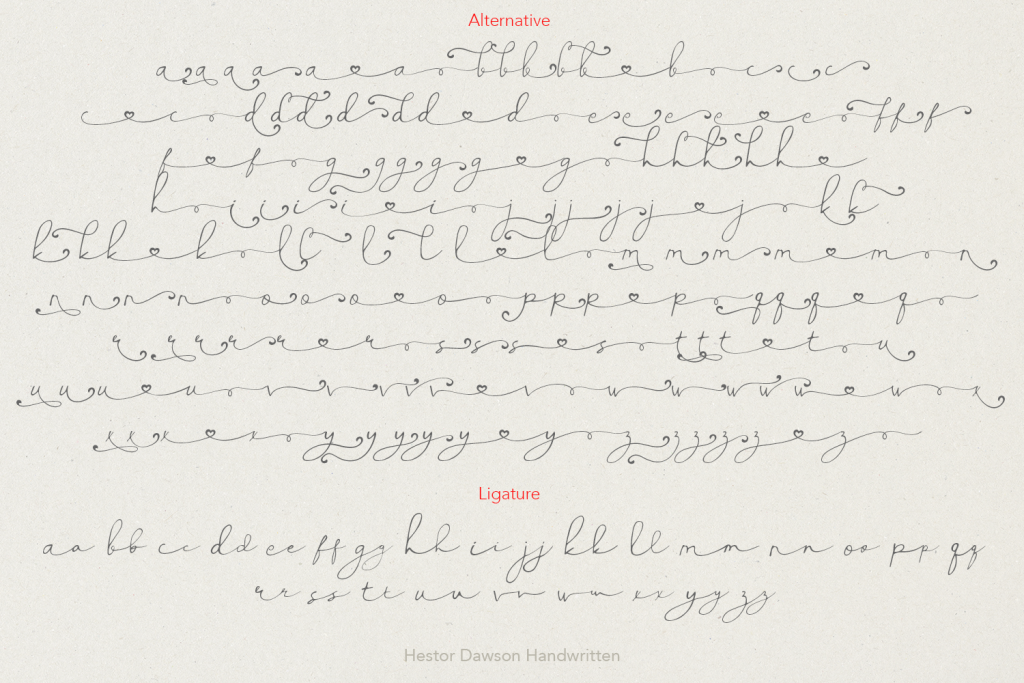 Alternative
a a a a a a b b b b b b c c c
c c d d d d d d d e e e e e e f f f
f f g g g g g g h h h h h
h i i i i i j j j j j j k k
k k k k l l l l l l m m m m m n
n n n n o o o o p p p p q q q q
r r r r r r s s s s t t t t u
u u u u v v v v v v w w w w w w x
x x x x y y y y y y z z z z z z
Ligature
aa bb cc dd ee ff gg hh ii jj kk ll mm nn oo pp qq
rr ss tt uu vv ww xx yy zz
Hestor Dawson Handwritten